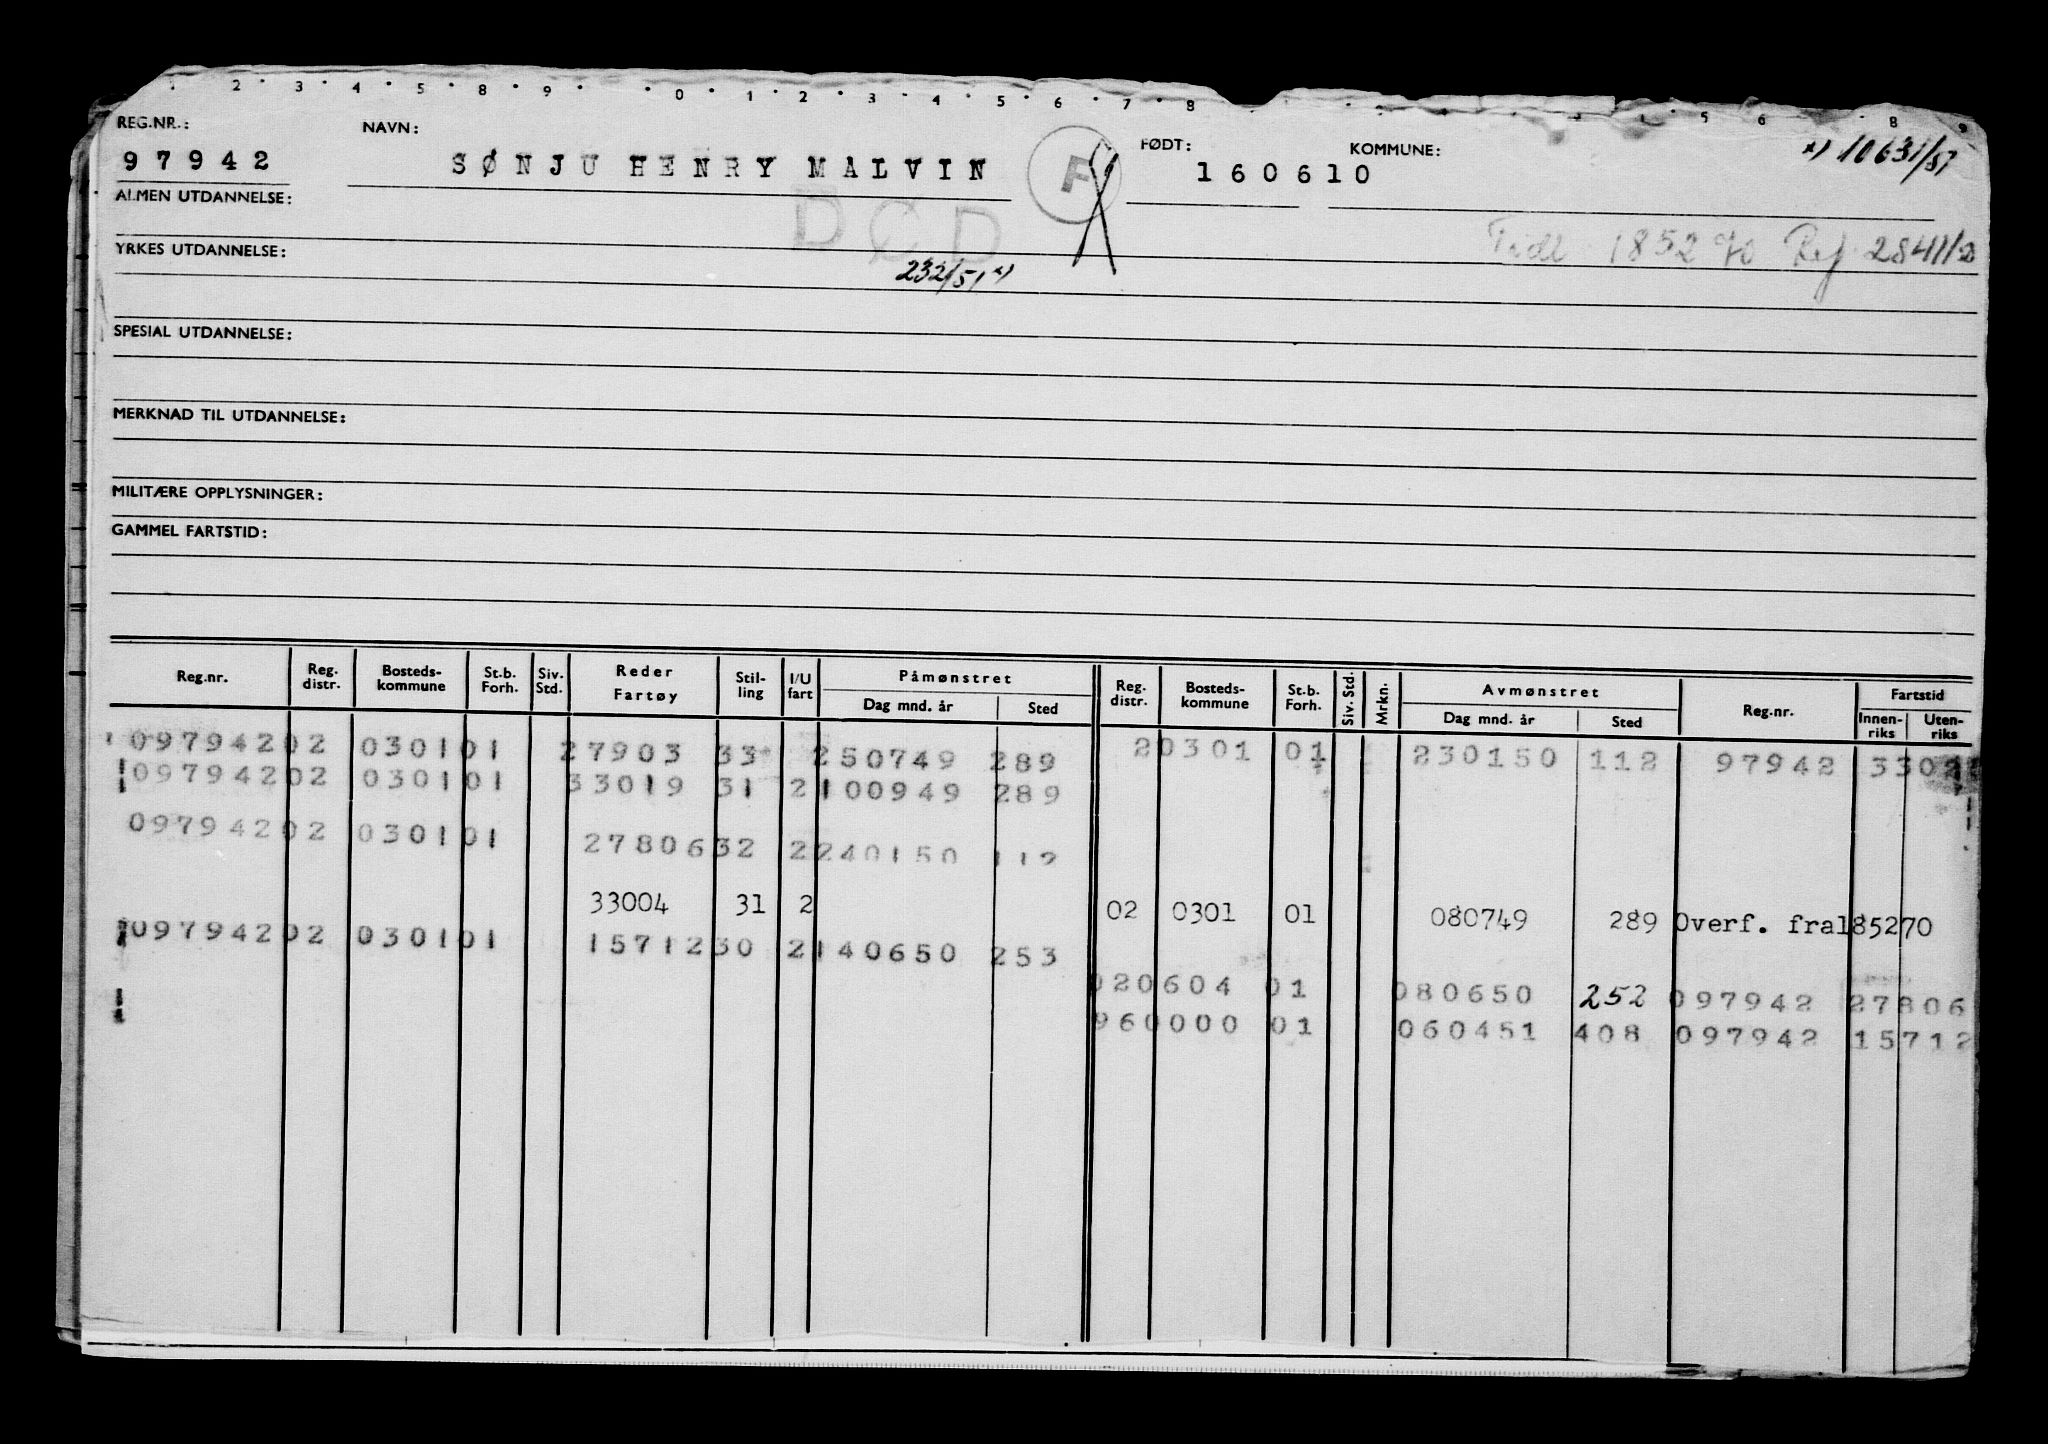 2 3 4 5 8 9 0 1 2 3 4 5 6 7 8 5 6 8 9
REG.NR.: NAVN: FØDT: KOMMUNE: x) 10631/51
97942 SØNJU HENRY MALVIN F 160610
ALMEN UTDANNELSE:
DØD
Tidl 185270 Ref 2841/2
YRKES UTDANNELSE:
232/51 x)
SPESIAL UTDANNELSE:
MERKNAD TIL UTDANNELSE:
MILITÆRE OPPLYSNINGER:
GAMMEL FARTSTID:
Reg.nr. Reg. distr. Bosteds-kommune St.b. Forh. Siv. Std. Reder Fartøy Stil-ling I/U fart Påmønstret Dag mnd. år Sted Reg. distr. Bosteds-kommune St.b. Forh. Siv. Std. Mrkn. Avmønstret Dag mnd. år Sted Reg.nr. Fartstid Innen-riks Uten-riks
097942 02 0301 01 27903 33 250749 289 20301 01 230150 112 97942 3302
097942 02 0301 01 33019 31 2 100949 289
097942 02 0301 01 27806 32 2 240150 112
33004 31 2 02 0301 01 080749 289 Overf. fra185270
097942 02 0301 01 15712 30 2 140650 253
02 0604 01 080650 252 097942 27806
96 0000 01 060451 408 097942 15712